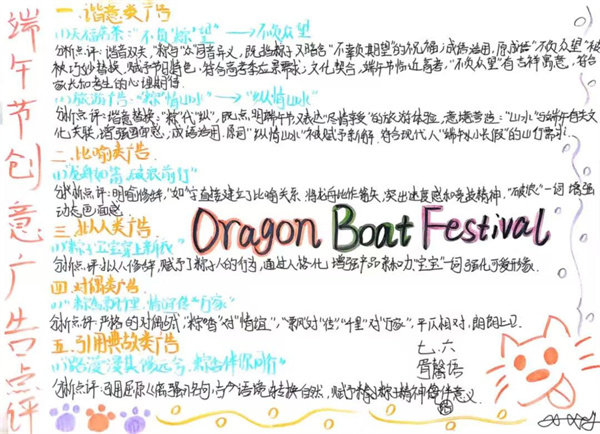 端午节创意广告点评
一.谐意类广告
(1)天信高茶:"不负'粽'望" → 不负众望
分析点评:谐音双关,"粽"与"众"同音异义,既指粽子又暗含"不辜负期望"的祝福;成语活用,原成语"不负众望"被
被巧妙替换,赋予节日特色,符合高考季应景需求;文化契合,端午节临近高考,"不负众望"有吉祥寓意,符合
家长和考生的心理期待.
(2)旅游广告:"粽"情山水" → "纵情山水"
分析点评:谐意替换,"粽"代"纵",既点明端午节又表达"尽情享受"的旅游体验,意境营造:"山水"与端午有关文
化关联,增强画面感,成语活用.原词"纵情山水"被赋予新解,符合现代人"端午小长假"的出行需求.
二.比喻类广告
(1)"龙舟如箭,破浪前行"
分析点评:明喻修辞,"如"字直接建立了比喻关系,将龙舟比作箭矢,突出速度感和竞技精神."破浪"一词增强
动态画面感.
三.拟人类广告
(1)"粽子宝宝穿上新衣"
分析点评:拟人修辞,赋予了粽子人的行为,通过人格化,增强产品亲和力,"宝宝"一词强化可爱形象.
Dragon Boat Festival
四.对偶类广告
(1)"粽香飘千里,情谊传万家"
分析点评:严格的对偶式,"粽香"对"情谊","飘"对"传","千里"对"万家",平仄相对,朗朗上口.
五.引用典故类广告
(1)"路漫漫其修远兮,粽香伴你同行"
分析点评:引用屈原《离骚》名句,古今语境转换自然,赋予粽子精神陪伴意义.
七.六
胥馨语